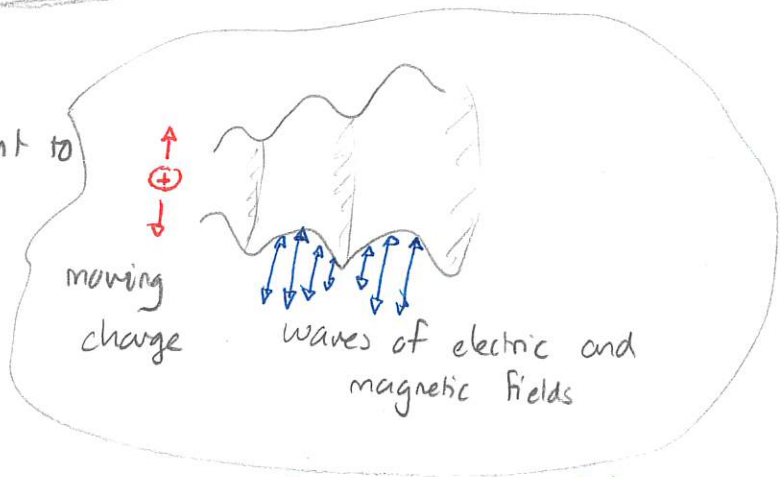 to
+
moving
charge
waves of electric and
magnetic fields